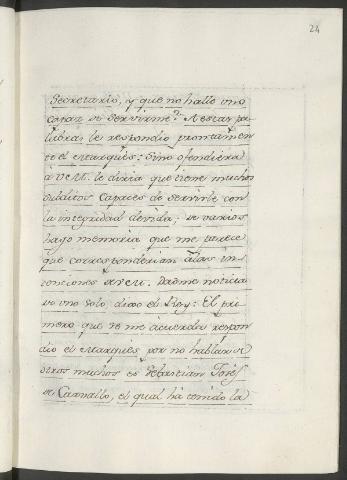 24
Secretario, y que no halle uno
capaz de servirme? A estas pa-
labras le respondio prontamen
te el Marqués: Si no ofendiera
à V. M. le diria que tiene muchos
subditos capaces de servirle con
la integridad devida; de varios
hago memoria que me parece
que corresponderian à las in-
tenciones de V. M. Dadme noticia
de uno solo, dixo el Rey: El pri
mero que se me acuerda respon
dió el Marqués, por no hablar de
otros muchos es Sebastian Josef
de Carvallo, el qual há tenido la